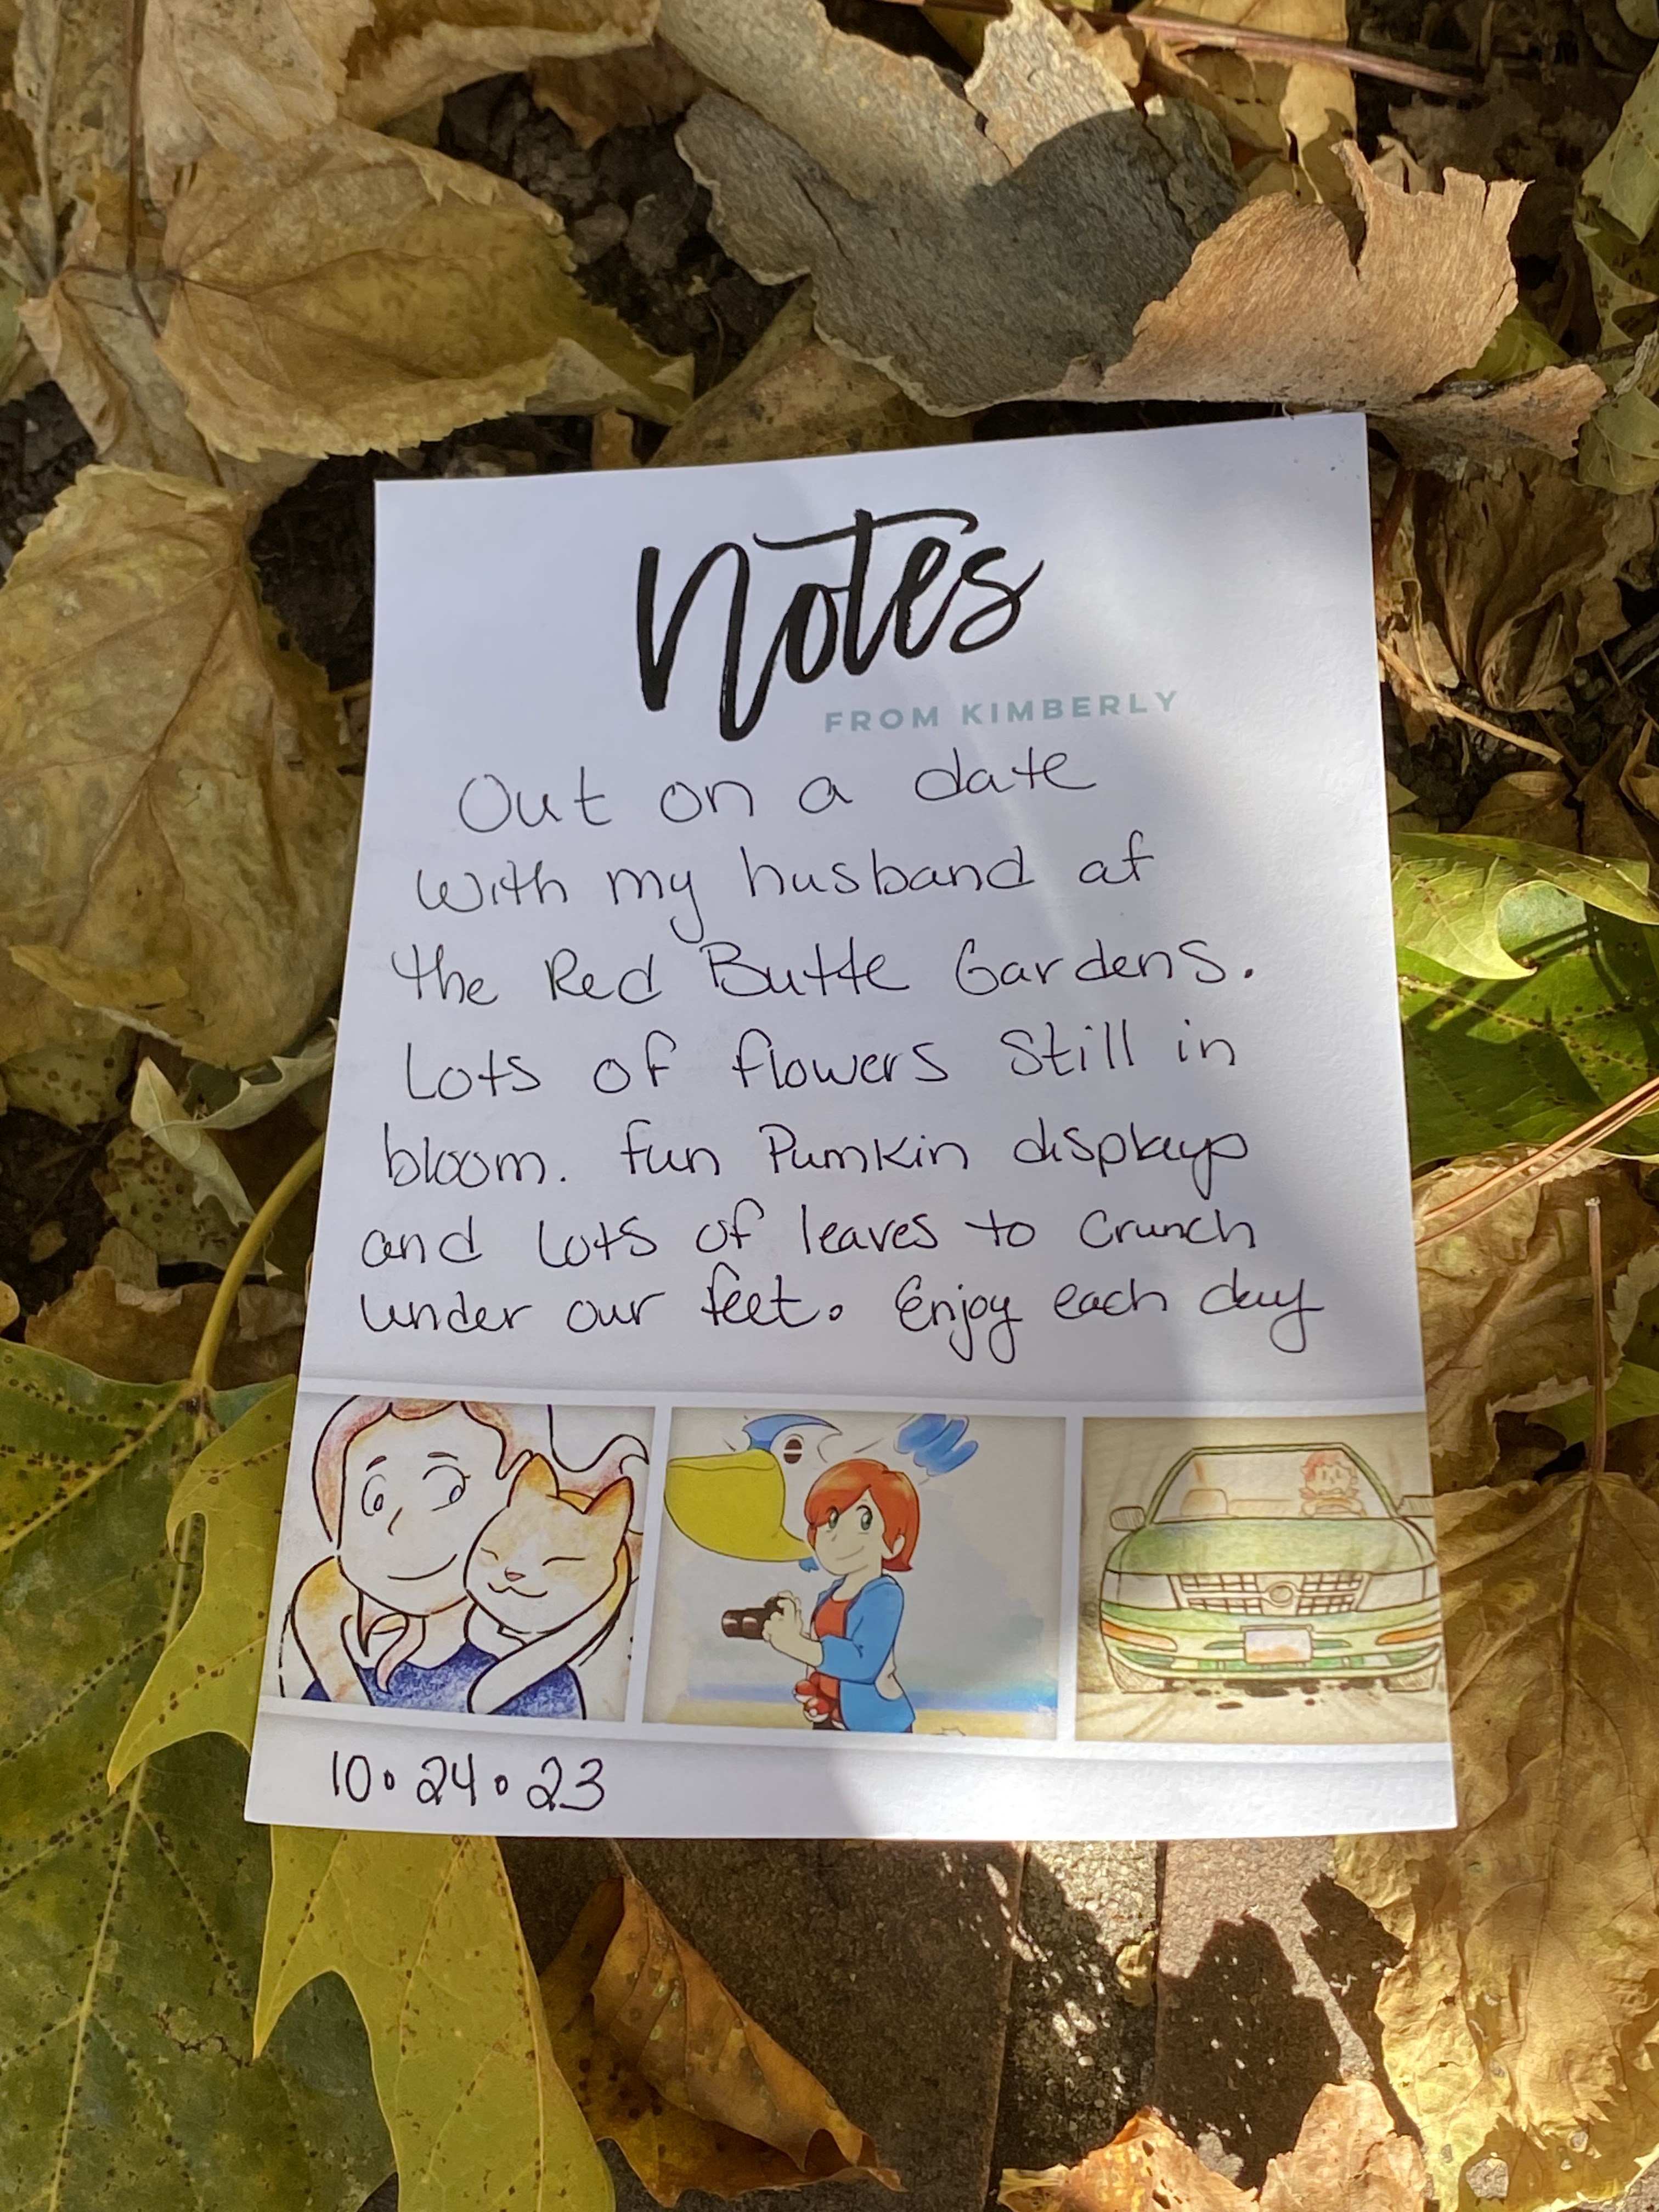 Notes
FROM KIMBERLY
Out on a date
with my husband at
the Red Butte Gardens.
Lots of flowers Still in
bloom. fun Pumkin displays
and lots of leaves to crunch
under our feet. Enjoy each day
10.24.23